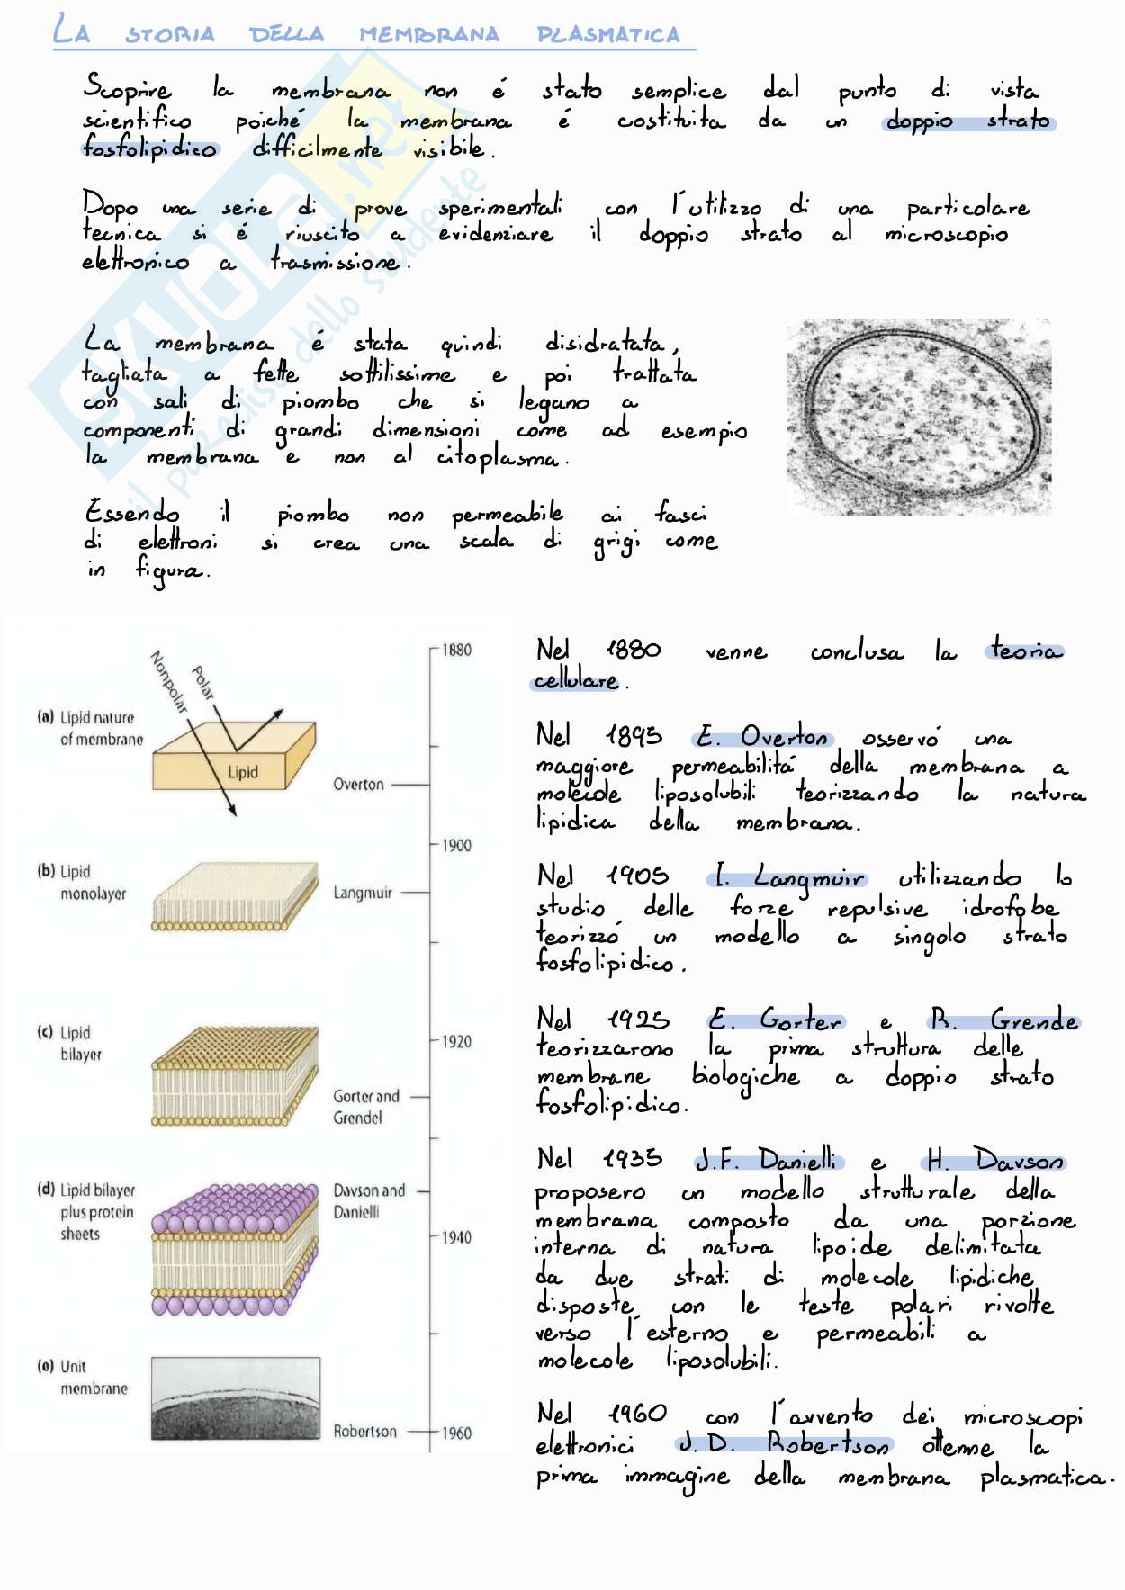 LA STORIA DELLA MEMBRANA PLASMATICA
Scoprire la membrana non é stato semplice dal punto di vista
scientifico poiché la membrana é costituita da un doppio strato
fosfolipidico difficilmente visibile.
Dopo una serie di prove sperimentali con l'utilizzo di una particolare
tecnica si é riuscito a evidenziare il doppio strato al microscopio
elettronico a trasmissione.
La membrana é stata quindi disidratata,
tagliata a fette sottilissime e poi trattata
con sali di piombo che si legano a
componenti di grandi dimensioni come ad esempio
la membrana e non al citoplasma.
Essendo il piombo non permeabile ai fasci
di elettroni si crea una scala di grigi come
in figura.
SKUOLA.net
il paradiso dello studente
Nonpolar
Polar
(a) Lipid nature
of membrane
Lipid
Overton
(b) Lipid
monolayer
Langmuir
(c) Lipid
bilayer
Gorter and
Grendel
(d) Lipid bilayer
plus protein
sheets
Davson and
Danielli
(e) Unit
membrane
Robertson
1880
1900
1920
1940
1960
Nel 1880 venne conclusa la teoria
cellulare.
Nel 1895 E. Overton osservó una
maggiore permeabilitá della membrana a
molecole liposolubili teorizzando la natura
lipidica della membrana.
Nel 1905 I. Langmuir utilizzando lo
studio delle forze repulsive idrofobe
teorizzó un modello a singolo strato
fosfolipidico.
Nel 1925 E. Gorter e R. Grende
teorizzarono la prima struttura delle
membrane biologiche a doppio strato
fosfolipidico.
Nel 1935 J.F. Danielli e H. Davson
proposero un modello strutturale della
membrana composto da una porzione
interna di natura lipoide delimitata
da due strati di molecole lipidiche
disposte con le teste polari rivolte
verso l'esterno e permeabili a
molecole liposolubili.
Nel 1960 con l'avvento dei microscopi
elettronici J.D. Robertson ottenne la
prima immagine della membrana plasmatica.